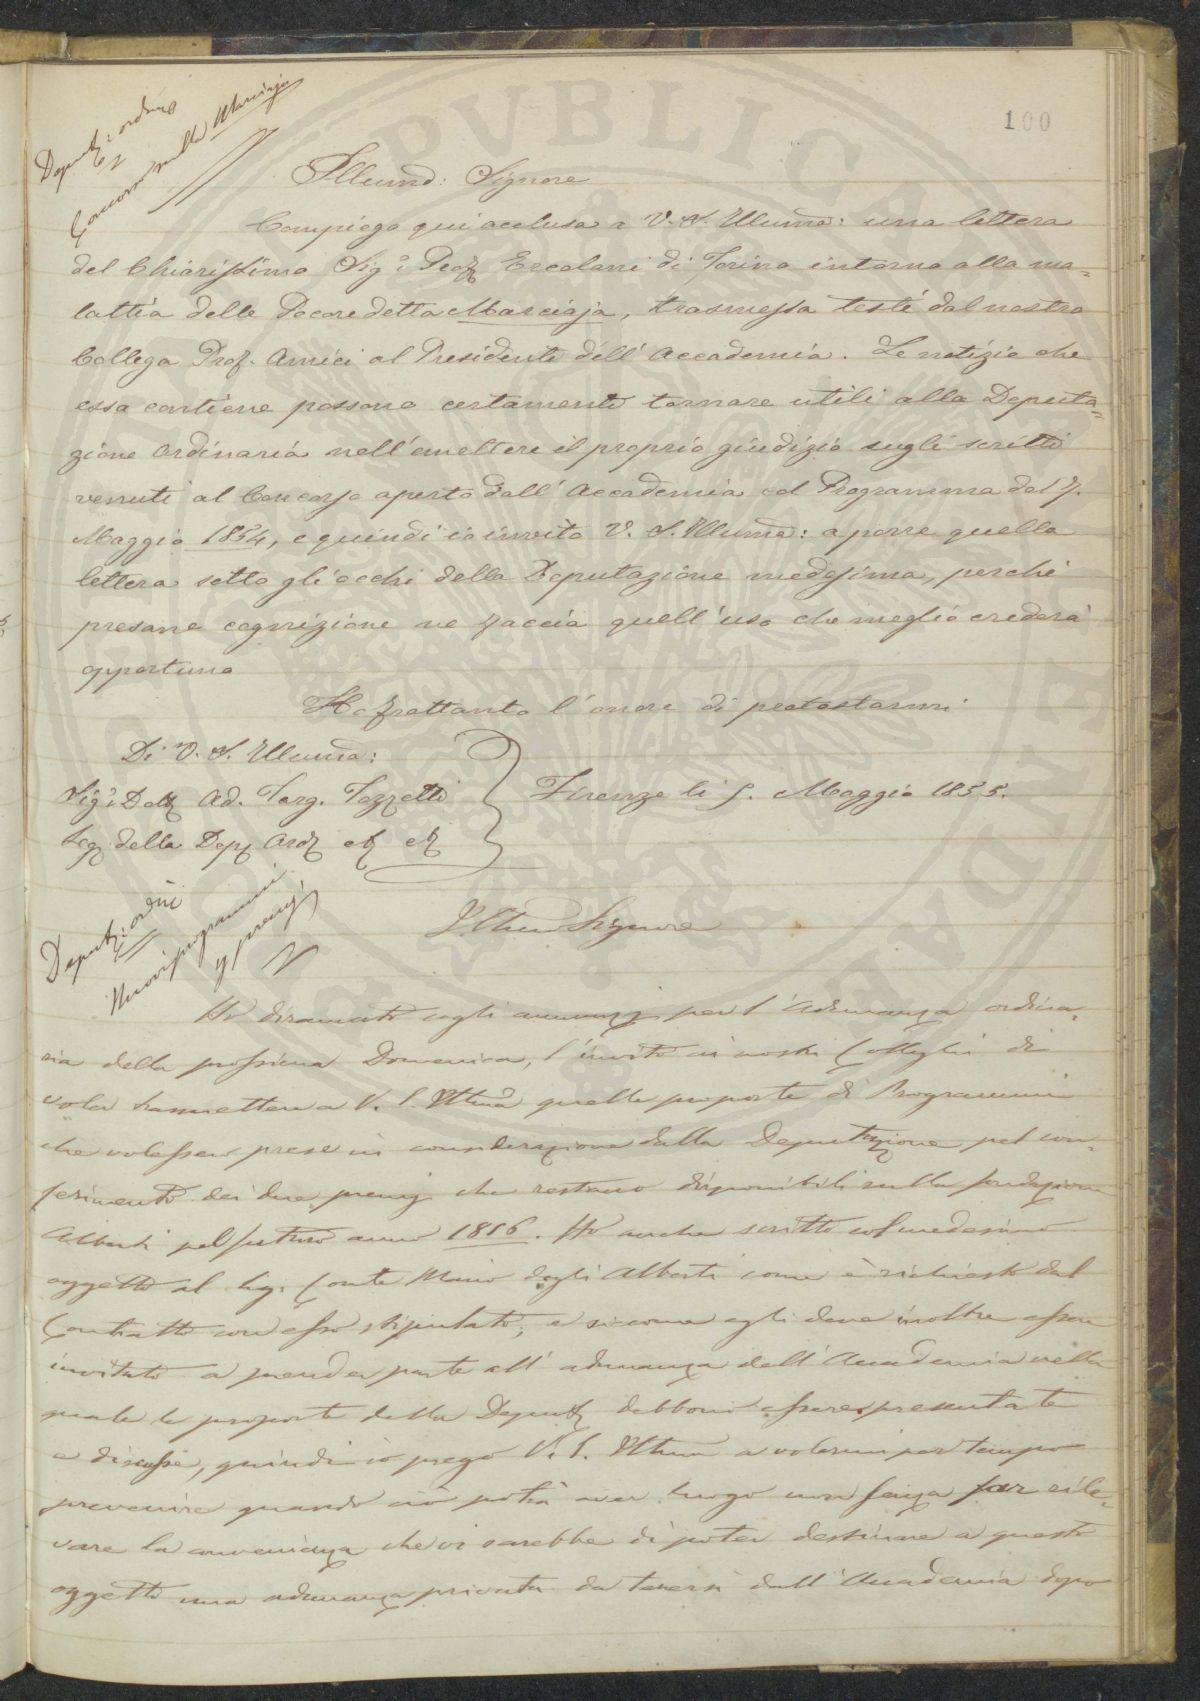 100
Deputaz: ordine
Concorso sulla Marciaja
Illumo: Signore
Compiego quì acclusa a V. S. Illuma: una lettera
del Chiarissimo Sig.r Prof Ercolani di Torino intorno alla ma=
lattia delle Pecore detta Marciaja, trasmessa testè dal nostro
Collega Prof. Amici al Presidente dell' Accademia. Le notizie che
essa contiene possono certamente tornare utili alla Deputa=
zione Ordinaria nell'emettere il proprio giudizio sugli scritti
venuti al Concorso aperto dall' Accademia col Programma del 7.
Maggio 1854, e quindi io invito V. S. Illuma: a porre quella
lettera sotto gli occhi della Deputazione medesima, perchè
presane cognizione ne faccia quell'uso che meglio crederà
opportuno
Ho frattanto l'onore di protestarmi
Di V. S. Illuma:
Sig.r Dott Ad. Targ. Tozzetti
Seg. della Dep. Ord. ec ec
Firenze li 5. Maggio 1855.
Deputaz: ordin
Nuovi programmi
p premj
Illmo Signore
Ho diramato cogli annunzj per l'adunanza ordina=
ria della prossima Domenica, l'invito ai nostri Colleghi di
voler trasmettere a V. S. Illma quelle proposte di Programmi
che volessero prese in considerazione dalla Deputazione pel con=
ferimento dei due premj che restano disponibili sulla fondazione
Alberti pel futuro anno 1856. Ho anche scritto sul medesimo
oggetto al Sig. Conte Mario degli Alberti come è richiesto dal
Contratto con esso stipulato, e siccome egli deve inoltre essere
invitato a prender parte all' adunanza dell'Accademia nella
quale le proposte della Deputaz debbono essere presentate
e discusse, quindi io prego V. S. Illma a volermi per tempo
prevenire quando ciò potrà aver luogo non senza far rile=
vare la convenienza che vi sarebbe di poter destinare a questo
oggetto una adunanza privata da tenersi dall'Accademia dopo